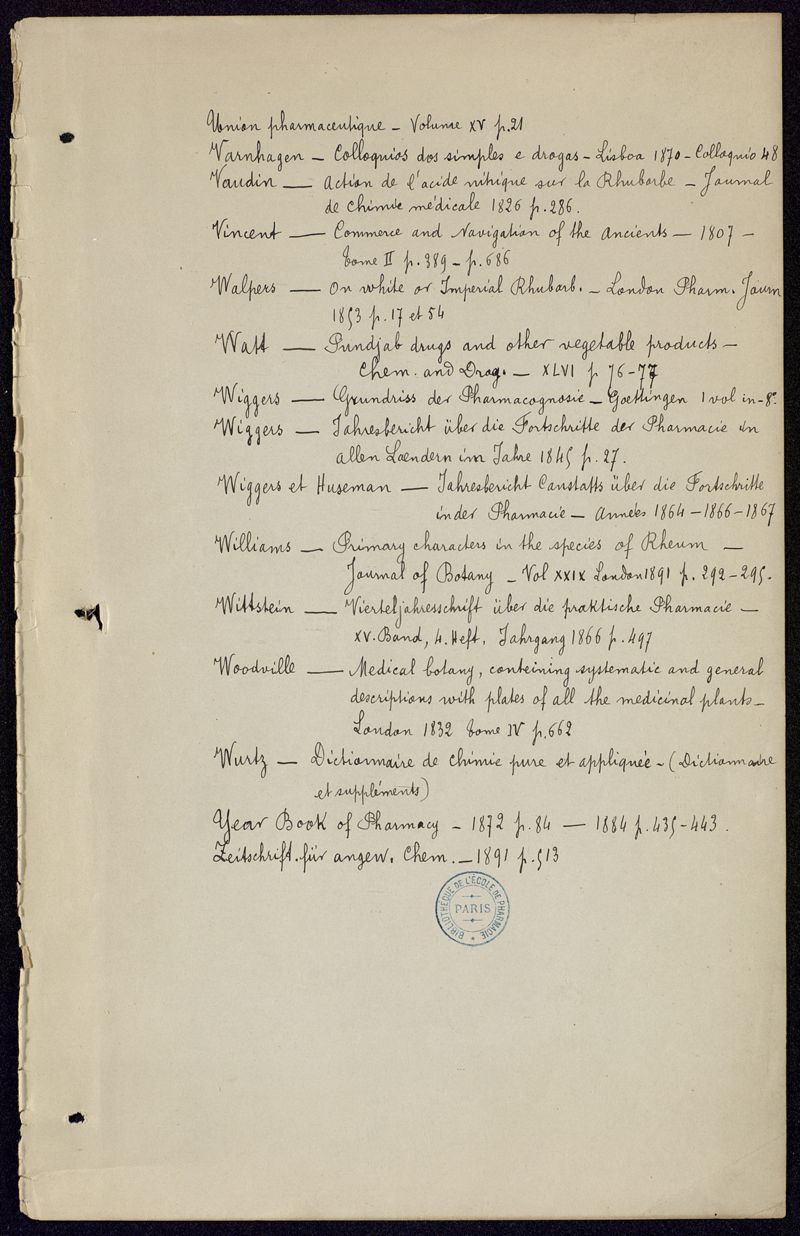 Union pharmaceutique – Volume XV p. 21
Varnhagen – Colloquios dos simples e drogas – Lisboa 1870 – Colloquio 48
Vaudin — Action de l'acide nitrique sur la Rhubarbe – Journal
de chimie médicale 1826 p. 286.
Vincent — Commerce and Navigation of the Ancients – 1807 –
tome II p. 389 – p. 686
Walpers — On white or Imperial Rhubarb. – London Pharm. Journ
1853 p. 17 et 54
Watt — Pundjab drugs and other vegetable products –
Chem. and Drog. – XLVI p 76-77
Wiggers — Grundriss der Pharmacognosie – Goettingen 1 vol in-8°
Wiggers — Jahresbericht über die Fortschritte der Pharmacie in
allen Laendern im Jahre 1845 p. 27.
Wiggers et Huseman — Jahresbericht Canstatts über die Fortschritte
in der Pharmacie – Années 1864 – 1866 – 1867
Williams – Primary characters in the species of Rheum –
Journal of Botany – Vol XXIX London 1891 p. 292-295.
Wittstein — Vierteljahresschrift über die praktische Pharmacie –
XV. Band, 4. Heft, Jahrgang 1866 p. 497
Woodville — Medical botany, conteining systematic and general
descriptions with plates of all the medicinal plants –
London 1832 tome IV p. 662
Wurtz – Dictionnaire de chimie pure et appliquée – (Dictionnaire
et suppléments)
Year Book of Pharmacy – 1872 p. 84 — 1884 p. 435-443.
Zeitschrift. für angew. Chem. – 1891 p. 513
BIBLIOTHÈQUE DE L'ÉCOLE DE PHARMACIE
PARIS